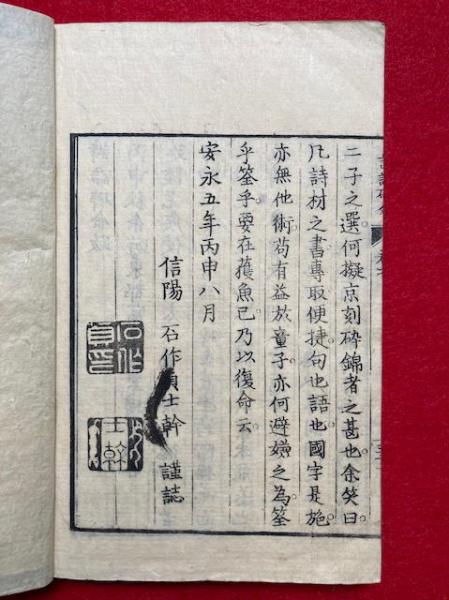 二子之選何擬京刻碎錦者之甚也余笑曰
凡詩材之書專取便捷句也語也國字是施
亦無他術苟有益於童子亦何避嫌之為筌
乎筌乎要在獲魚已乃以復命云
安永五年丙申八月
信陽 石作貞士幹 謹誌
石作
貞印
士幹